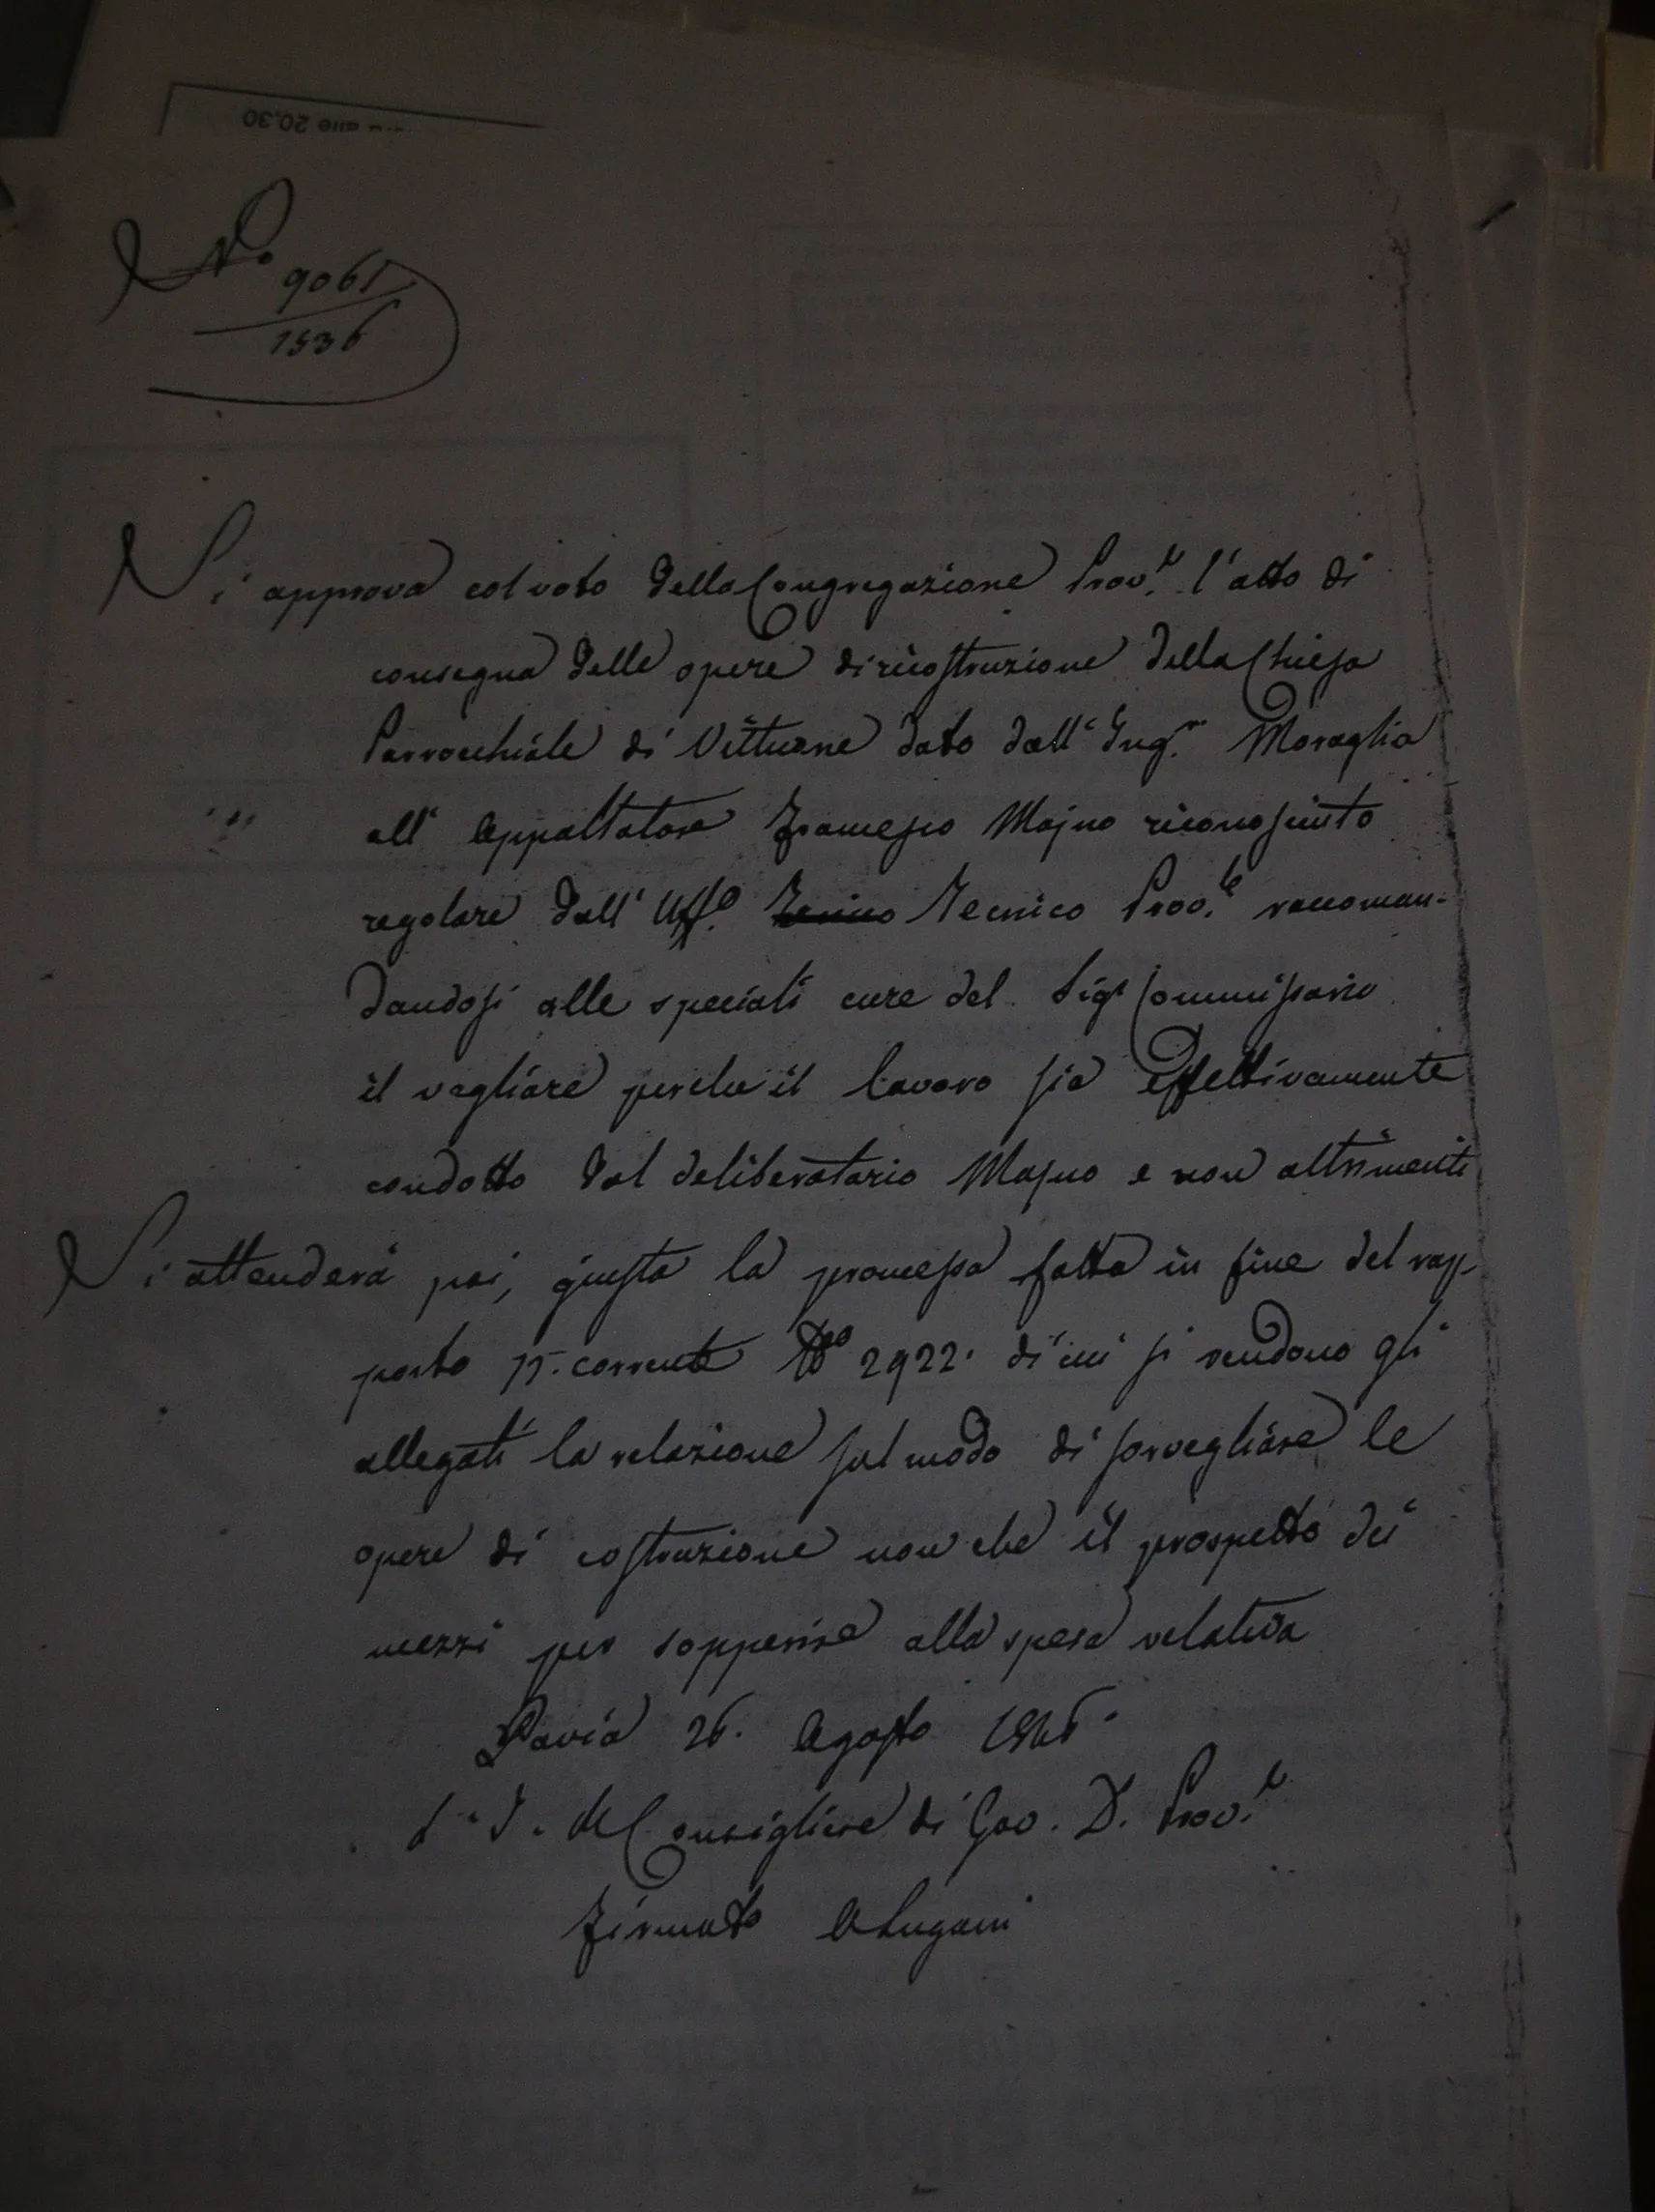 alle 20.30
N.º 9061
1536
Si approva col voto della Congregazione Prov.le l'atto di
consegna delle opere di ricostruzione della Chiesa
Parrocchiale di Vittuone dato dall' Ing.r Moraglia
all' Appaltatore Francesco Majno riconosciuto
regolare dall' Uff.o Tecnico Prov.le raccoman-
dandosi alle speciali cure del Sig.r Commissario
il vegliare perche il lavoro sia effettivamente
condotto dal deliberatario Majno e non altrimenti
Si attenderá poi, giusta la promessa fatta in fine del rap-
porto 15. corrente N.º 2922. di cui si rendono gli
allegati la relazione sul modo di sorvegliare le
opere di costruzione non che il prospetto dei
mezzi per sopperire alla spesa relativa
Pavia 26. Agosto 1846.
Consigliere di Gov. D. Prov.le
Firmato